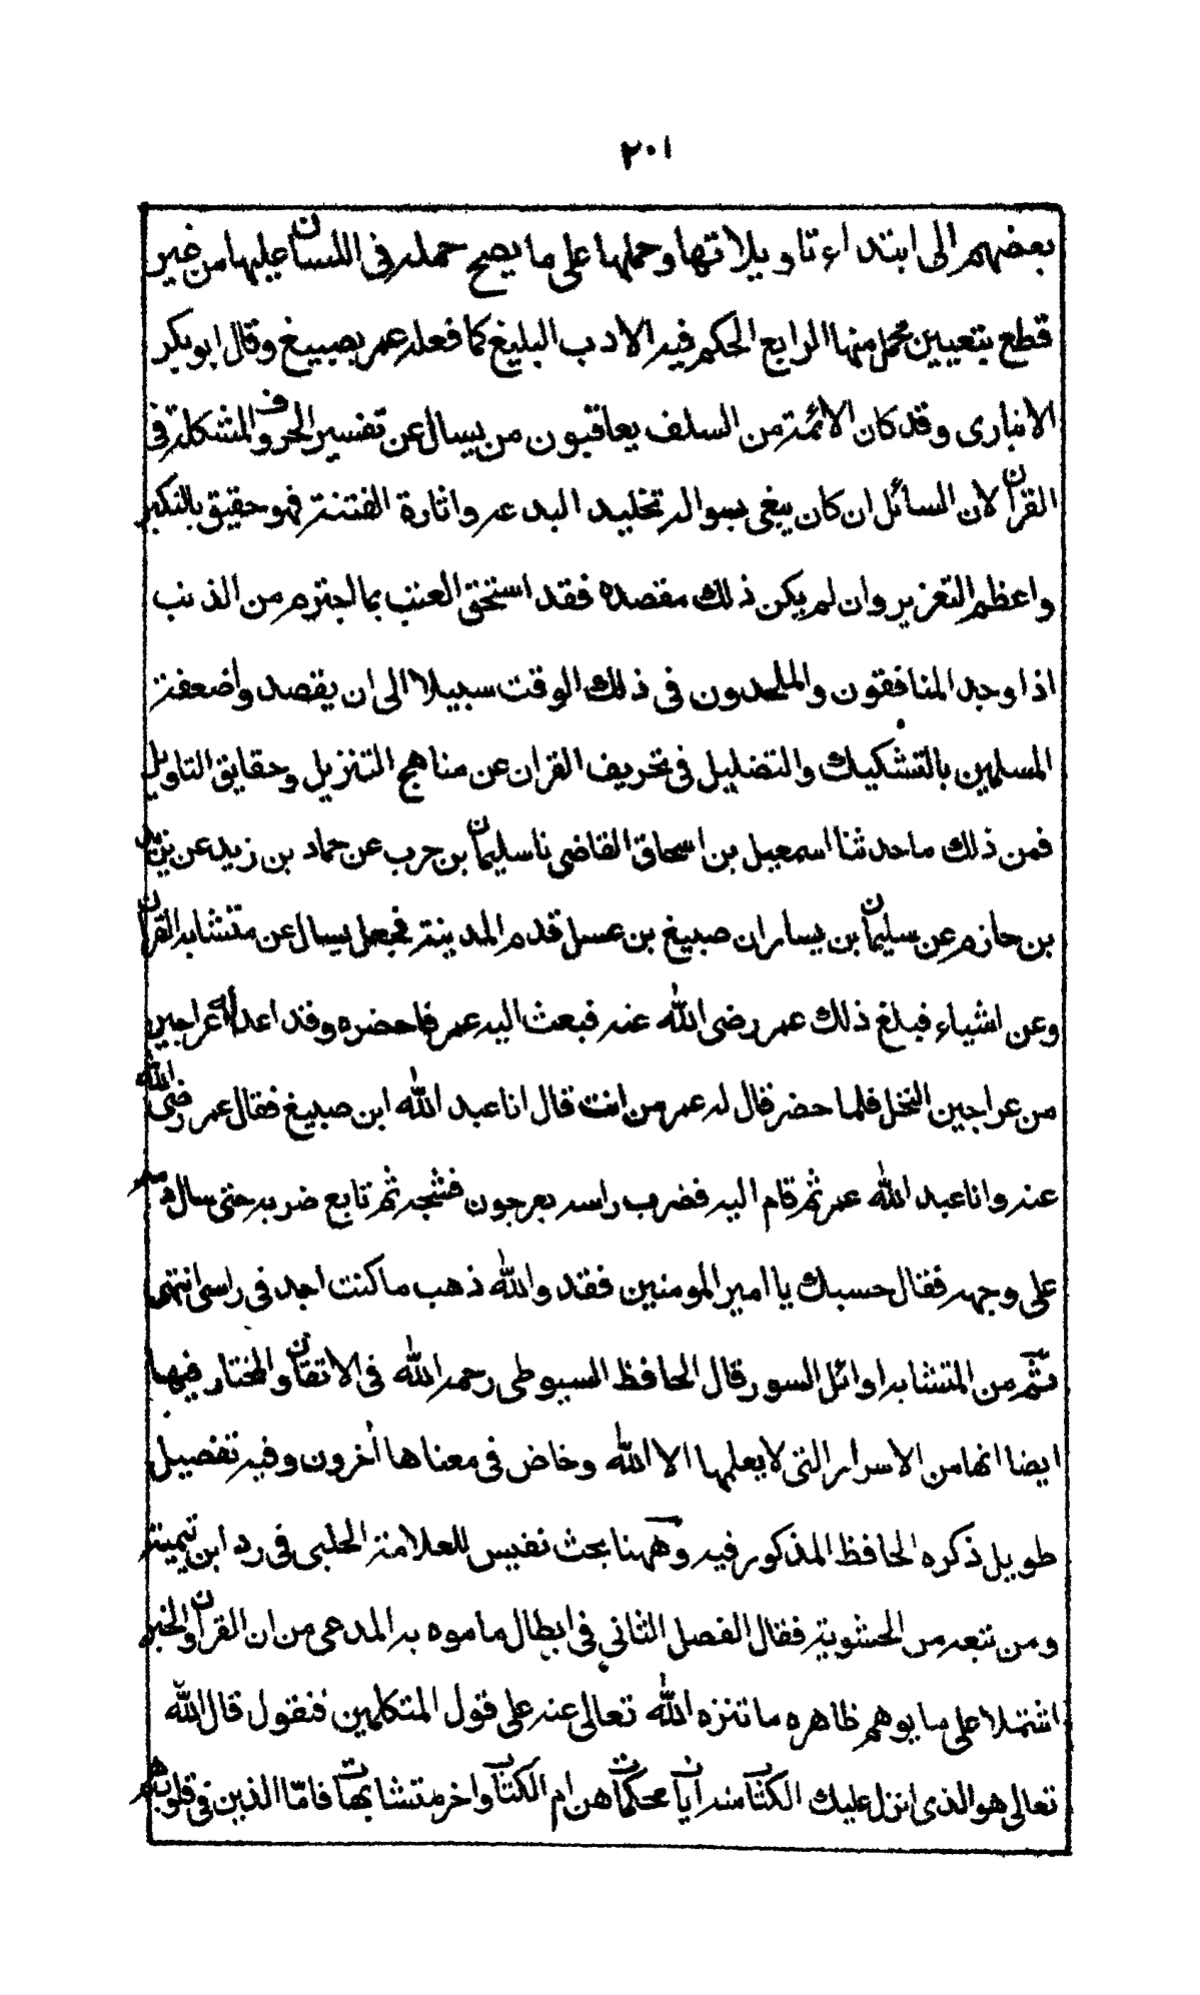 ٢٠١
بعضهم الى ابتداء تاويلاتها وحملها على ما يصح حمله فى اللسان عليها من غير
قطع بتعيين محمل منها الرابع الحكم فيه الادب البليغ كما فعله عمر بصبيغ وقال ابو بكر
الانبارى وقد كان الائمة من السلف يعاقبون من يسال عن تفسير الحروف المشكلة فى
القران لان السائل ان كان يبغى بسواله تخليد البدعه واثارة الفتنة فهو حقيق بالنكير
واعظم التعزير وان لم يكن ذلك مقصده فقد استحق العتب بما اجترم من الذنب
اذا وجد المنافقون والملحدون فى ذلك الوقت سبيلا الى ان يقصدوا ضعفة
المسلمين بالتشكيك والتضليل فى تحريف القران عن مناهج التنزيل وحقايق التاويل
فمن ذلك ما حدثنا اسمعيل بن اسحاق القاضى نا سليمان بن حرب عن حماد بن زيد عن يزيد
بن حازم عن سليمان بن يسار ان صبيغ بن عسل قدم المدينة فجعل يسال عن متشابه القران
وعن اشياء فبلغ ذلك عمر رضى الله عنه فبعث اليه عمر فاحضره وقد اعد له عراجين
من عراجين النخل فلما حضر قال له عمر من انت قال انا عبد الله ابن صبيغ فقال عمر رضى الله
عنه وانا عبد الله عمر ثم قام اليه فضرب راسه بعرجون فشجه ثم تابع ضربه حتى سال دمه
على وجهه فقال حسبك يا امير المومنين فقد والله ذهب ما كنت اجد فى راسى انتهى
ثم من المتشابه اوائل السور قال الحافظ السيوطى رحمه الله فى الاتقان والمختار فيها
ايضا انها من الاسرار التى لا يعلمها الا الله وخاض فى معناها أخرون وفيه تفصيل
طويل ذكره الحافظ المذكور فيه وههنا بحث نفيس للعلامة الحلبى فى رد ابن تيمية
ومن تبعه من الحشوية فقال الفصل الثانى فى ابطال ما موه به المدعى من ان القران والخبر
اشتملا على ما يوهم ظاهره ما تنزه الله تعالى عنه على قول المتكلمين فنقول قال الله
تعالى هو الذى انزل عليك الكتاب منه ايات محكمات هن ام الكتاب واخر متشابهات فامّا الذين فى قلوبهم